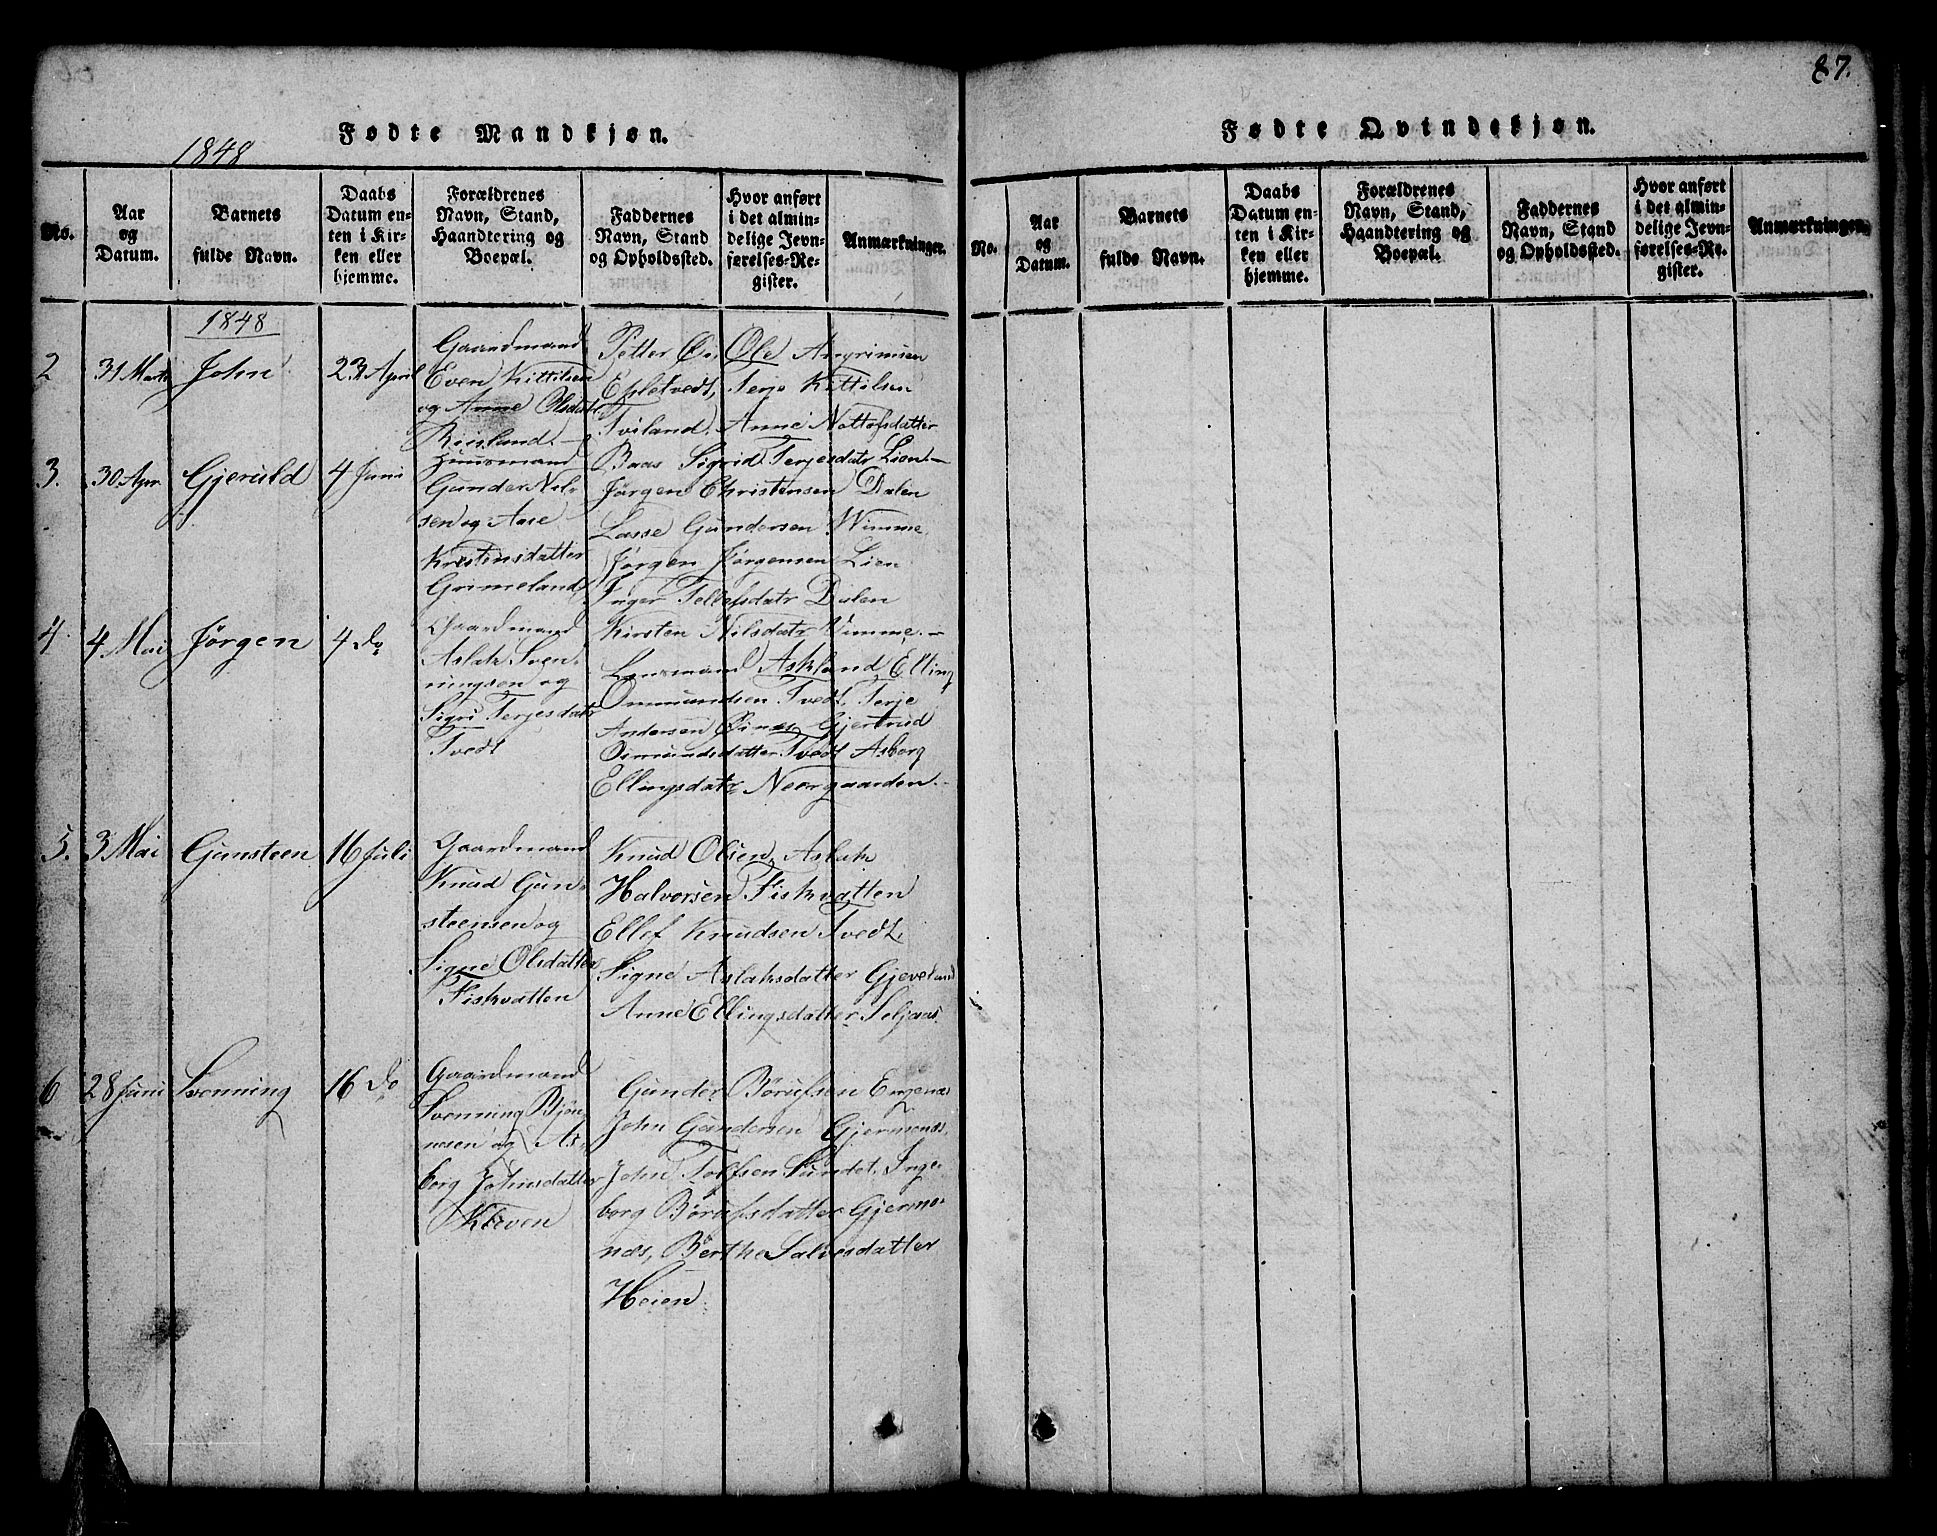 87.
Fødte Mandkjøn.
1848
No.
Aar
og
Datum.
Barnets
fulde Navn.
Daabs
Datum en-
ten i Kir-
ken eller
hjemme.
Forældrenes
Navn, Stand,
Haandtering og
Boepæl.
Faddernes
Navn, Stand
og Opholdssted.
Hvor anført
i det almin-
delige Jevn-
førelses-Re-
gister.
Anmærkninger.
1848
2
31 Marts
John
23 April
Gaardmand
Even Kittilsen
og Anne Olsdatr
Risland.
Petter Ols. Ole Angrimsen
Espletvedt, Terje Kittilsen
Tviland. Anne Nottofsdatter
Baas Sigrid Terjesdatr Lien.-
3.
30 Apr.
Gjeruld
4 Juni
Huusmand
Gunder Nil-
sen og Aase
Krestensdatter
Grimeland
Jørgen Christensen Dalen
Lasse Gundersen Wimme
Jørgen Jørgensen Lien
Inger Tellefsdatr Dalen
Kirsten Nilsdatr Wimme.-
4
4 Mai
Jørgen
4 Do
Gaardmand
Aslak Sven-
ningsen og
Sigri Terjesdatr
Tvedt
Lensmand Askland, Elling
Ommundsen Tvedt, Terje
Andersen Gjertrud
Osmundsdatter Tvedt Asborg
Ellingsdatr Neergaarden.-
5.
3 Mai
Gunsteen
16 Juli
Gaardmand
Knud Gun-
steensen og
Signe Olsdatter
Fiskvatten
Knud Olsen, Aslak
Halvorsen Fiskvatten
Ellef Knudsen Tvedt.
Signe Aslaksdatter Gjeveland
Anne Ellingsdatter Seljaas
6
28 Juni
Svenning
16 Do
Gaardmand
Svenning Bjøn-
nesen og As-
borg Johnsdatter
Kleven
Gunder Børufsen Engenæs
John Gundersen Gjermonæs,
John Tolfsen Sundet, Inge-
borg Børufsdatter Gjermo-
næs, Berthe Salvesdatter
Heien.
Fødte Qvindekjøn.
No.
Aar
og
Datum.
Barnets
fulde Navn.
Daabs
Datum en-
ten i Kir-
ken eller
hjemme.
Forældrenes
Navn, Stand,
Haandtering og
Boepæl.
Faddernes
Navn, Stand
og Opholdssted.
Hvor anført
i det almin-
delige Jevn-
førelses-Re-
gister.
Anmærkninger.